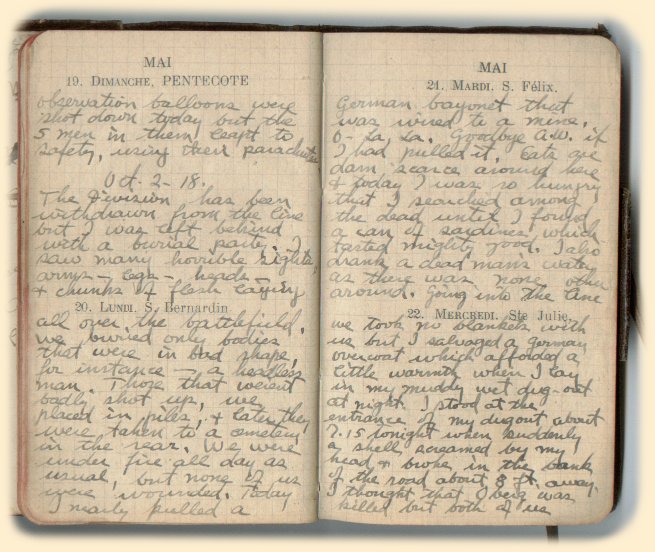 MAI
19. DIMANCHE, PENTECOTE
observation balloons were
shot down today but the
5 men in them leapt to
safety, using their parachutes
Oct-2-18.
The Division has been
withdrawn from the line
but I was left behind
with a burial party. I
saw many horrible sights
arms - legs - heads -
& chunks of flesh laying
20. LUNDI. S. Bernardin
all over the battlefield.
we buried only bodies
that were in bad shape,
for instance - a headless
man. Those that weren't
badly shot up, we
placed in piles, & later they
were taken to a cemetery
in the rear. We were
under fire all day as
usual, but none of us
were wounded. Today
I nearly pulled a
MAI
21. MARDI. S. Félix.
German bayonet that
was wired to a mine.
O-La La. Goodbye A.W. if
I had pulled it. Eats are
darn scarce around here
& today I was so hungry
that I searched among
the dead until I found
a can of sardines which
tasted mighty good. I also
drank a dead man's water
as there was none other
around. Going into the line
22. MERCREDI. Ste Julie.
we took no blankets with
us but I salvaged a German
overcoat which afforded a
little warmth when I lay
in my muddy wet dug-out
at night. I stood at the
entrance of my dugout about
7.15 tonight when suddenly
a shell screamed by my
head & broke in the bank
of the road about 8 ft. away.
I thought that Oberg was
killed but both of us